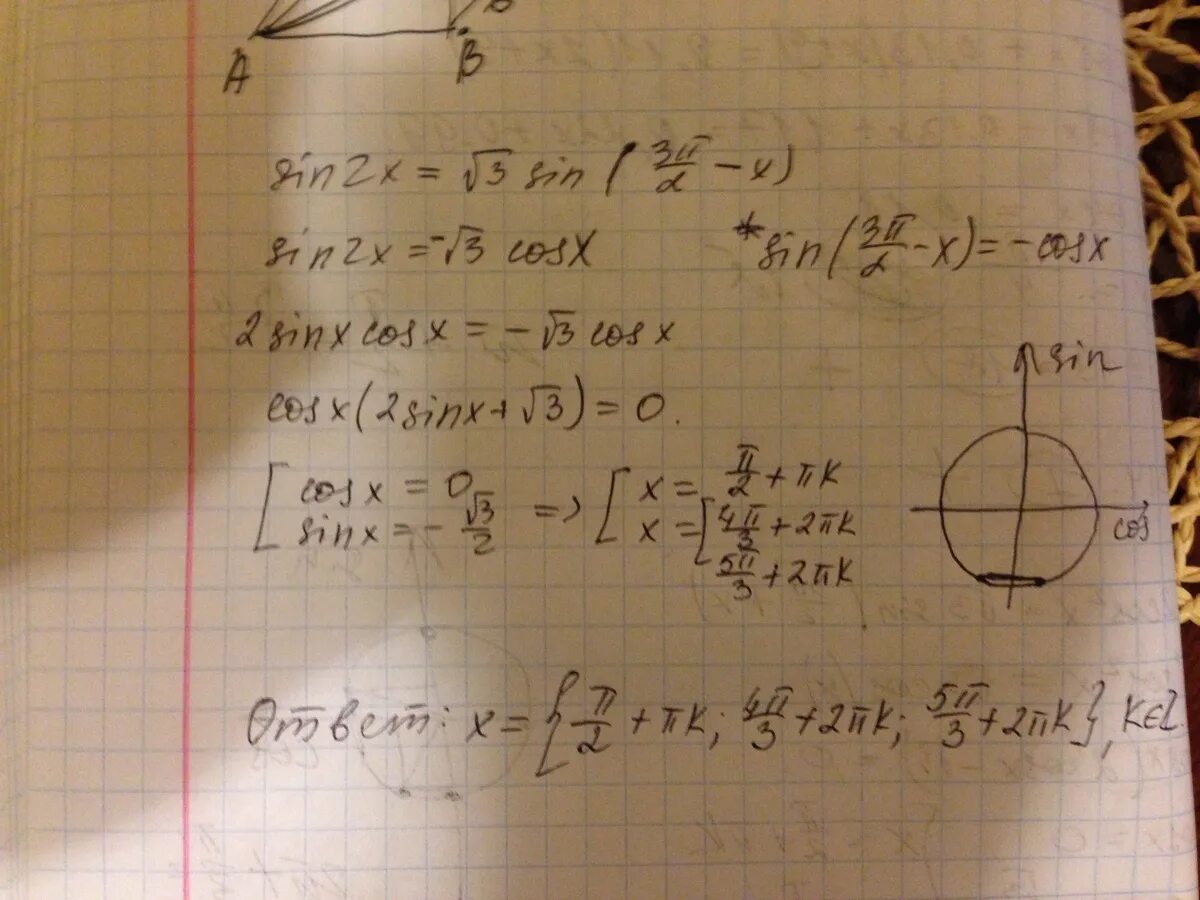 A B
sin2x = √3 sin(3π/2 - x)
sin2x = -√3 cosx *sin(3π/2 - x) = -cosx
2sinx cosx = -√3 cosx
sin
cosx(2sinx + √3) = 0.
[ cosx = 0 => [ x = π/2 + πK
sinx = -√3/2 x = [ 4π/3 + 2πK cos
5π/3 + 2πK
Ответ: x = {π/2 + πK; 4π/3 + 2πK; 5π/3 + 2πK}, K∈Z.